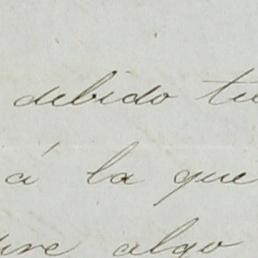 debido tu
á la que
ure algo